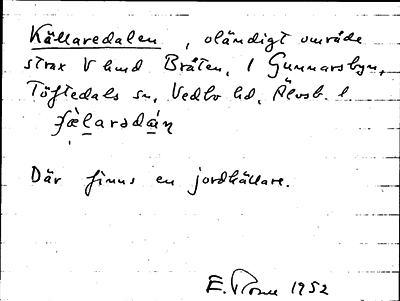 Källaredalen, oländigt område
strax V hmd Bråten, 1 Gunnarsbyn,
Töftedals sn, Vedbo hd, Älvsb. l
Där finns en jordkällare.
E. 1952